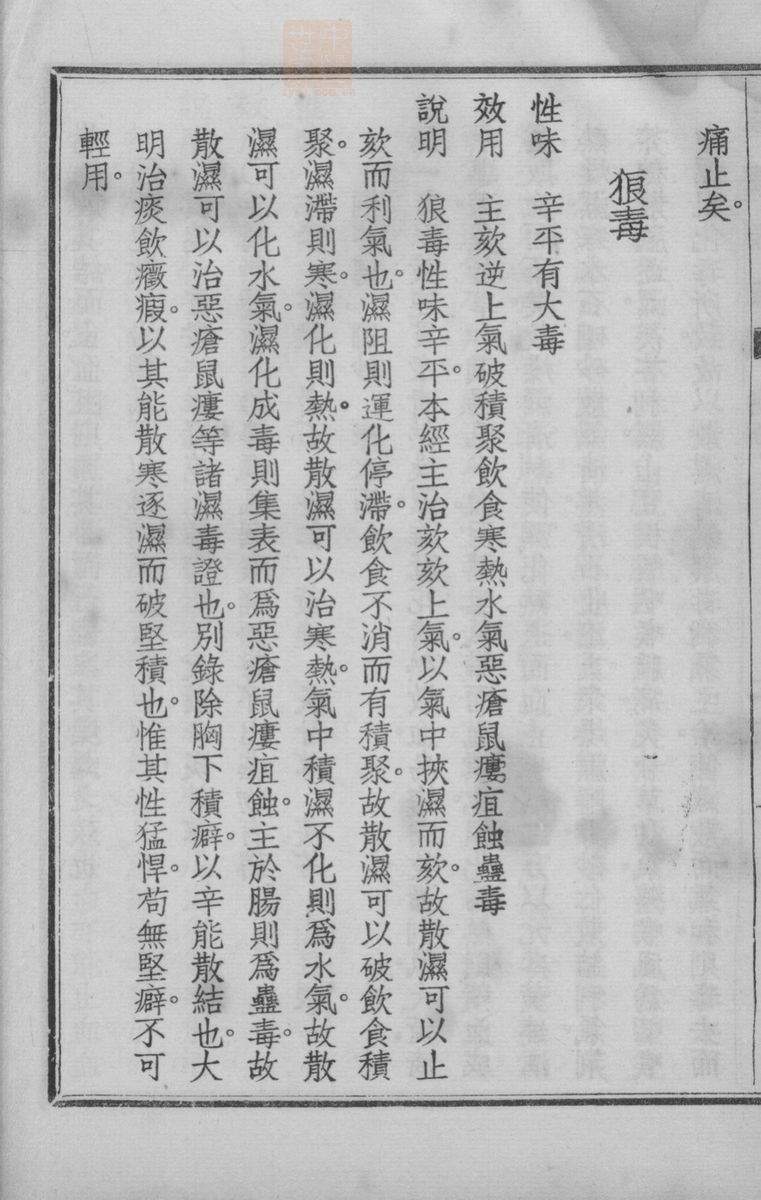 痛止矣。
狼毒
性味　辛平有大毒
效用　主欬逆上氣破積聚飲食寒熱水氣惡瘡鼠瘻疽蝕蠱毒
說明　狼毒性味辛平。本經主治欬欬上氣。以氣中挾濕而欬。故散濕可以止
欬而利氣也。濕阻則運化停滯。飲食不消而有積聚。故散濕可以破飲食積
聚。濕滯則寒。濕化則熱。故散濕可以治寒熱。氣中積濕不化則爲水氣。故散
濕可以化水氣。濕化成毒則集表而爲惡瘡鼠瘻疽蝕。主於腸則爲蠱毒。故
散濕可以治惡瘡鼠瘻等諸濕毒證也。別錄除胸下積癖。以辛能散結也。大
明治痰飲癥瘕。以其能散寒逐濕而破堅積也。惟其性猛悍。苟無堅癖。不可
輕用。